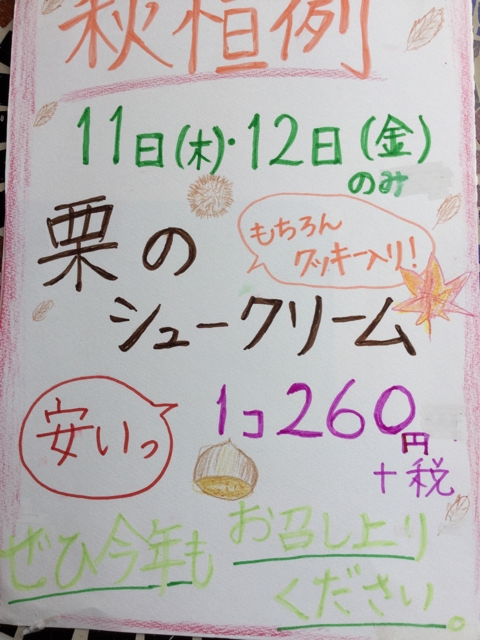 秋恒例
11日(木)・12日(金)
のみ
栗の
もちろん
クッキー入り!
シュークリーム
安いっ
1コ260円
+税
ぜひ今年も
お召し上り
ください。